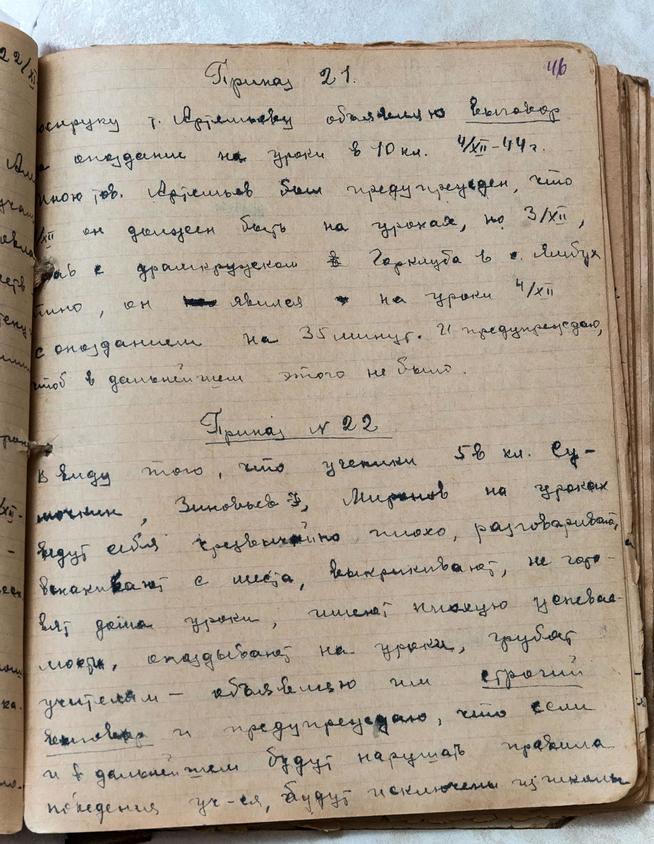 22/XII
46
Приказ 21.
оенруку т. Артемьеву объявляю выговор
а опоздание на уроки в 10 кл. 4/XII-44 г.
мною тов. Артемьев был предупрежден, что
/XII он должен быть на уроках, но 3/XII,
с драмкружком Горклуба в с.
он явился на уроки 4/XII
с опозданием на 35 минут. И предупреждаю,
чтоб в дальнейшем этого не было.
Приказ № 22
В виду того, что ученики 5в кл. Су-
Зиновьев, Миронов на уроках
ведут себя чрезвычайно плохо, разговаривают,
вскакивают с места, выкрикивают, не гото-
вят дома уроки, имеют плохую успевае-
мость, опаздывают на уроки, грубят
учителям – объявляю им строгий
выговор и предупреждаю, что если
и в дальнейшем будут нарушать правила
поведения уч-ся, будут исключены из школы